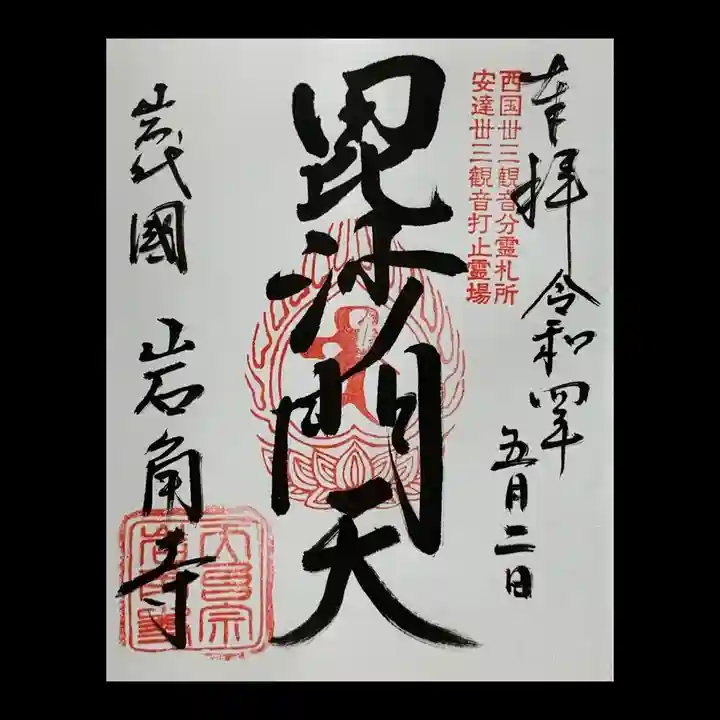 奉拝 令和四年
五月二日
西国丗三観音分霊札所
安達丗三観音打止霊場
毘沙門天
岩代國 岩角寺